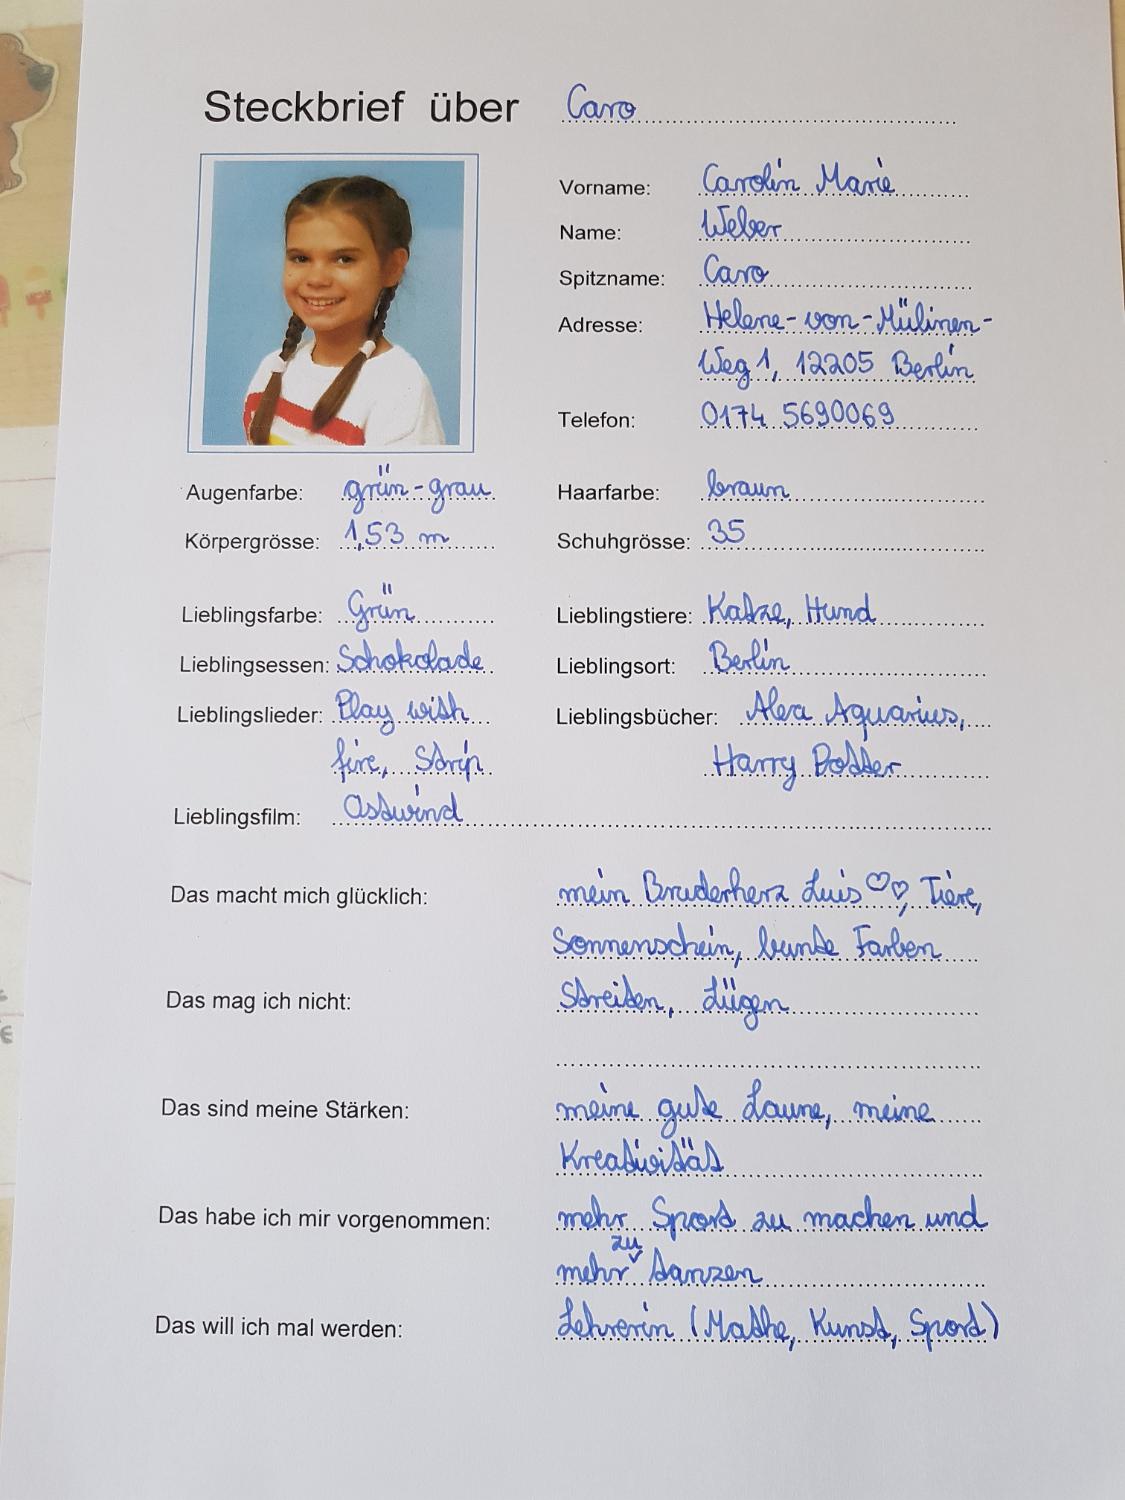 Steckbrief über Caro
Vorname: Carolin Marie
Name: Weber
Spitzname: Caro
Adresse: Helene-von-Mülinen-
Weg 1, 12205 Berlin
Telefon: 0174 5690069
Augenfarbe: grün-grau Haarfarbe: braun
Körpergrösse: 1,53 m Schuhgrösse: 35
Lieblingsfarbe: Grün Lieblingstiere: Katze, Hund
Lieblingsessen: Schokolade Lieblingsort: Berlin
Lieblingslieder: Play with Lieblingsbücher: Alea Aquarius,
fire, Strip Harry Potter
Lieblingsfilm: Ostwind
Das macht mich glücklich: mein Bruderherz Luis ♡♡, Tiere,
Sonnenschein, bunte Farben
Das mag ich nicht: Streiten, Lügen
Das sind meine Stärken: meine gute Laune, meine
Kreativität
Das habe ich mir vorgenommen: mehr Sport zu machen und
mehr zu tanzen
Das will ich mal werden: Lehrerin (Mathe, Kunst, Sport)